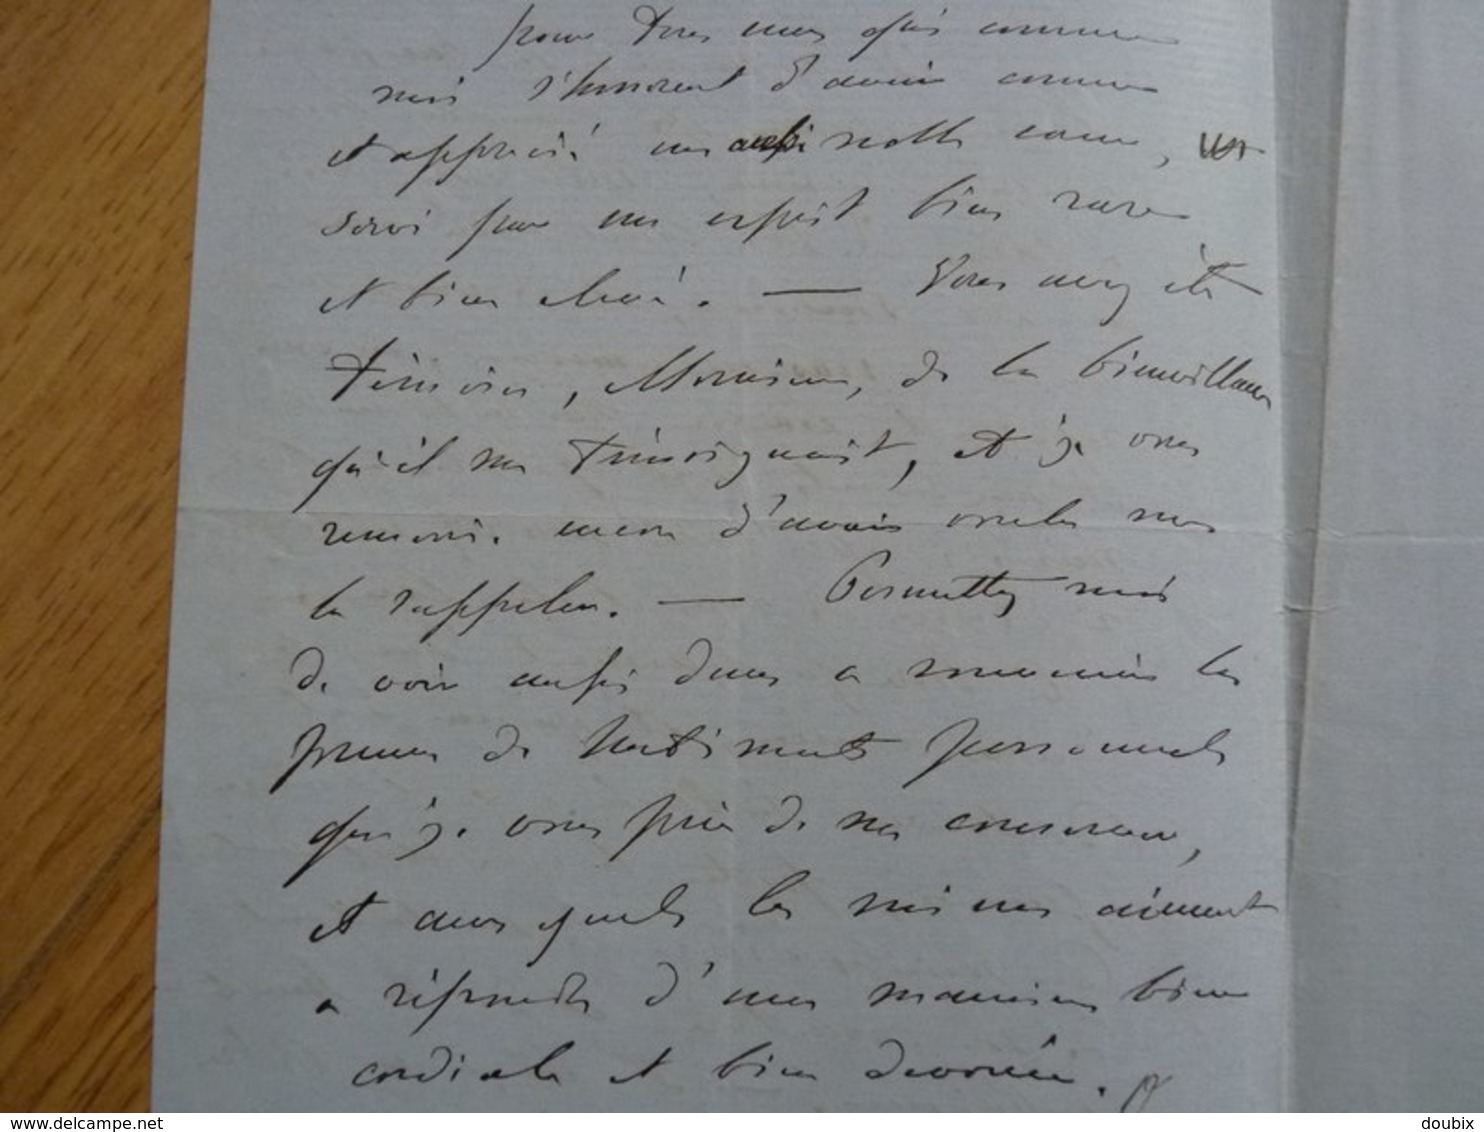 pour tous ceux qui comme
moi s'honorent d'avoir connu
et apprécié un aussi noble cœur,
servi par un esprit bien rare
et bien élevé. — Vous avez été
témoin, Monsieur, de la bienveillance
qu'il me témoignait, et je vous
remercie encore d'avoir voulu me
la rappeler. — Permettez moi
de voir aussi dans ce souvenir la
preuve de sentiments personnels
que je vous prie de me conserver,
et auxquels les miens aiment
a répondre d'une manière bien
cordiale et bien dévouée.
delcampe.net
doubix